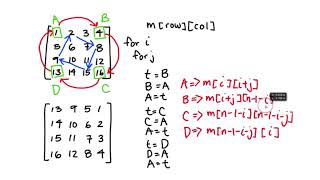 A B
1 2 3 4
5 6 7 8
9 10 11 12
13 14 15 16
D C
13 9 5 1
14 10 6 2
15 11 7 3
16 12 8 4
m[row][col]
for i
for j
t = B
B = A
A = t
t = C
C = A
A = t
t = D
D = A
A = t
A => m[i][i+j]
B => m[i+j][n-1-i]
C => m[n-1-i][n-1-i-j]
D => m[n-1-i-j][i]